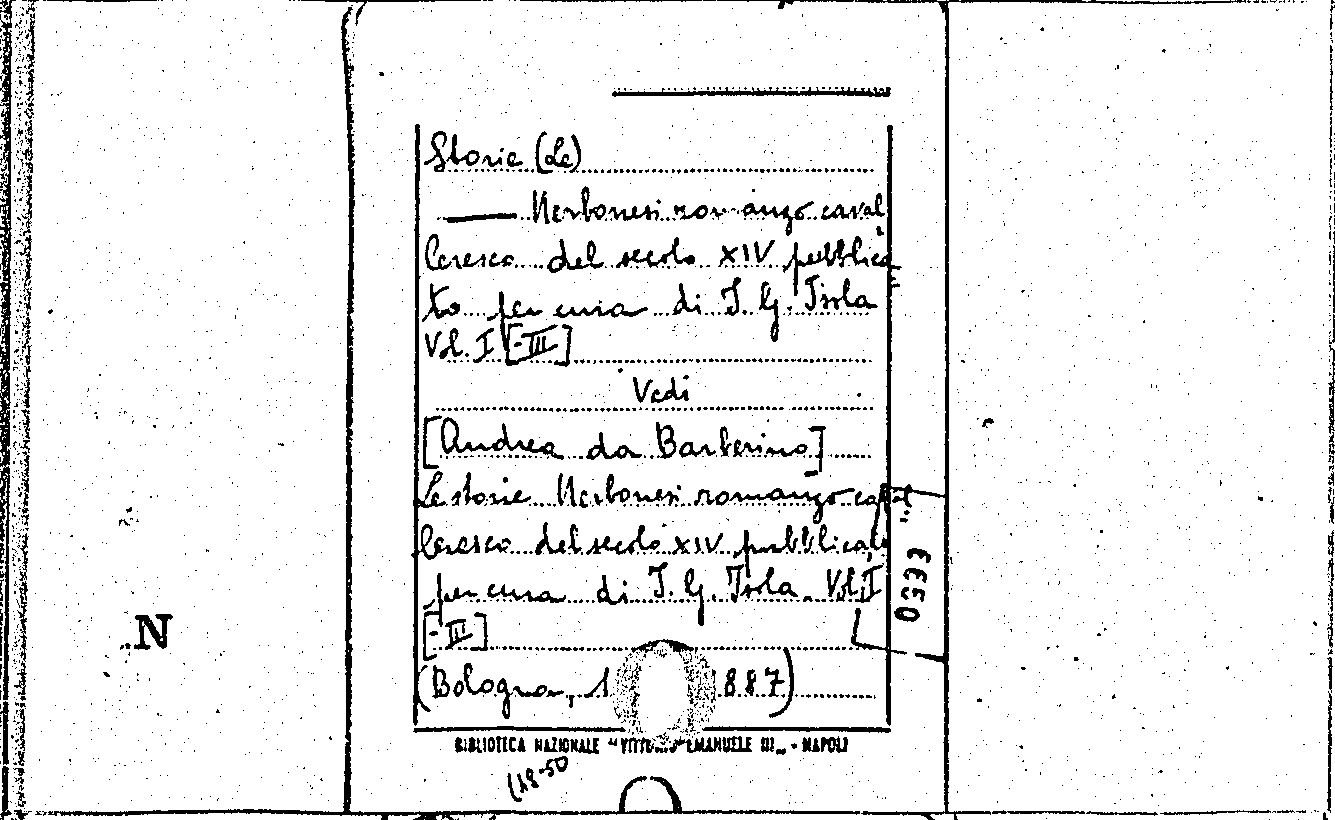 Storie (Le)
— Nerbonesi romanzo caval
leresco del secolo XIV pubblica
to per cura di I. G. Isola
Vol. I [-III]
Vedi
[Andrea da Barberino]
Le storie Nerbonesi romanzo caval
leresco del secolo XIV pubblicato
per cura di I. G. Isola Vol. I
[-III]
(Bologna, 1 887)
BIBLIOTECA NAZIONALE "VITTORIO EMANUELE III„ - NAPOLI
0333
N